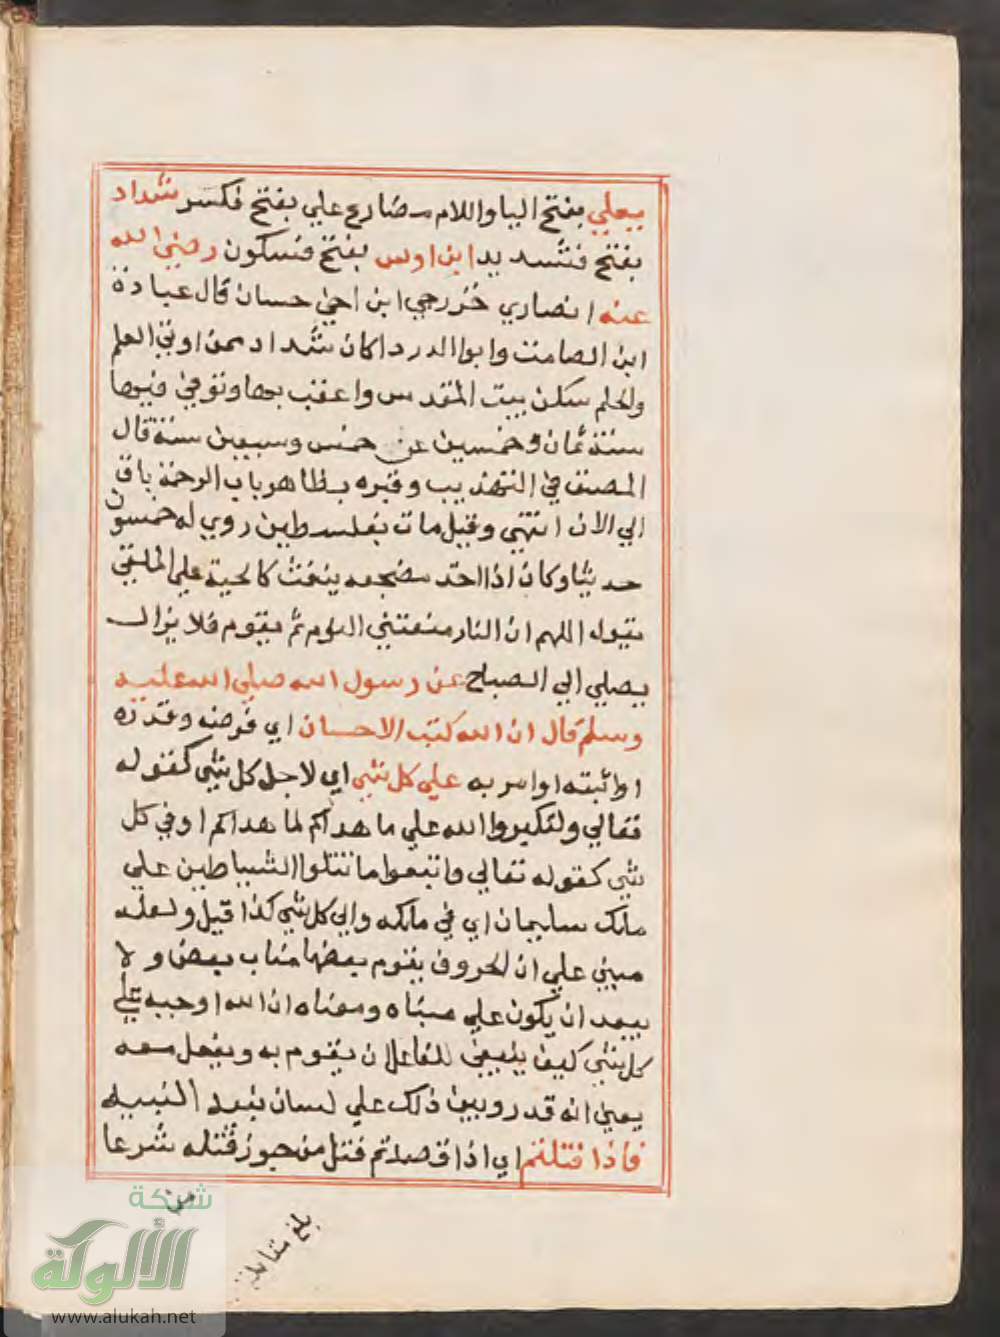 يعلي بفتح اليا واللام مضارع علي بفتح فكسر شداد
بفتح فتشديد ابن اوس بفتح فسكون رضي الله
عنه انصاري خزرجي ابن اخي حسان قال عبادة
ابن الصامت وابوا الدرداكان شداد ممن اوتي العلم
والحلم سكن بيت المقدس واعقب بها وتوفي فيها
سنة ثمان وخمسين عن خمس وسبعين سنة قال
المصنف في التهذيب وقبره بظاهر باب الرحمة باق
الي الان انتهي وقيل مات بفلسطين روي له خمسون
حديثا وكان اذا اخذ مضجعه يتقلب كالحية علي المقلي
يقول اللهم ان النار منعتني النوم ثم يقوم فلا يزال
يصلي الي الصباح عن رسول الله صلي الله عليه
وسلم قال ان الله كتب الاحسان اي فرضه وقدره
او اثبته او امر به علي كل شي اي لاجل كل شي كقوله
تعالي ولتكبروا الله علي ما هداكم لما هداكم او في كل
شي كقوله تعالي واتبعوا ما تتلوا الشياطين علي
ملك سليمان اي في ملكه والي كل شي كذا قيل ولعله
مبني علي ان الحروف يقوم بعضها مناب بعض ولا
يبعد ان يكون علي مبناه ومعناه ان الله اوجبه علي
كل شي كيف ينبغي للفاعل ان يقوم به ويفعل معه
يعني انه قدر وبين ذلك علي لسان نبيه النبيه
فاذا قتلتم اي اذا قصدتم قتل من جوز قتله شرعا
من
بلغ مقابلة
شبكة
الألوكة
www.alukah.net